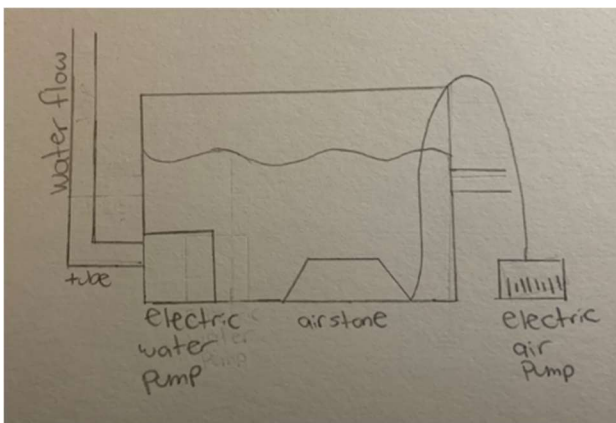 water flow
tube
electric
water
pump
airstone
electric
air
pump